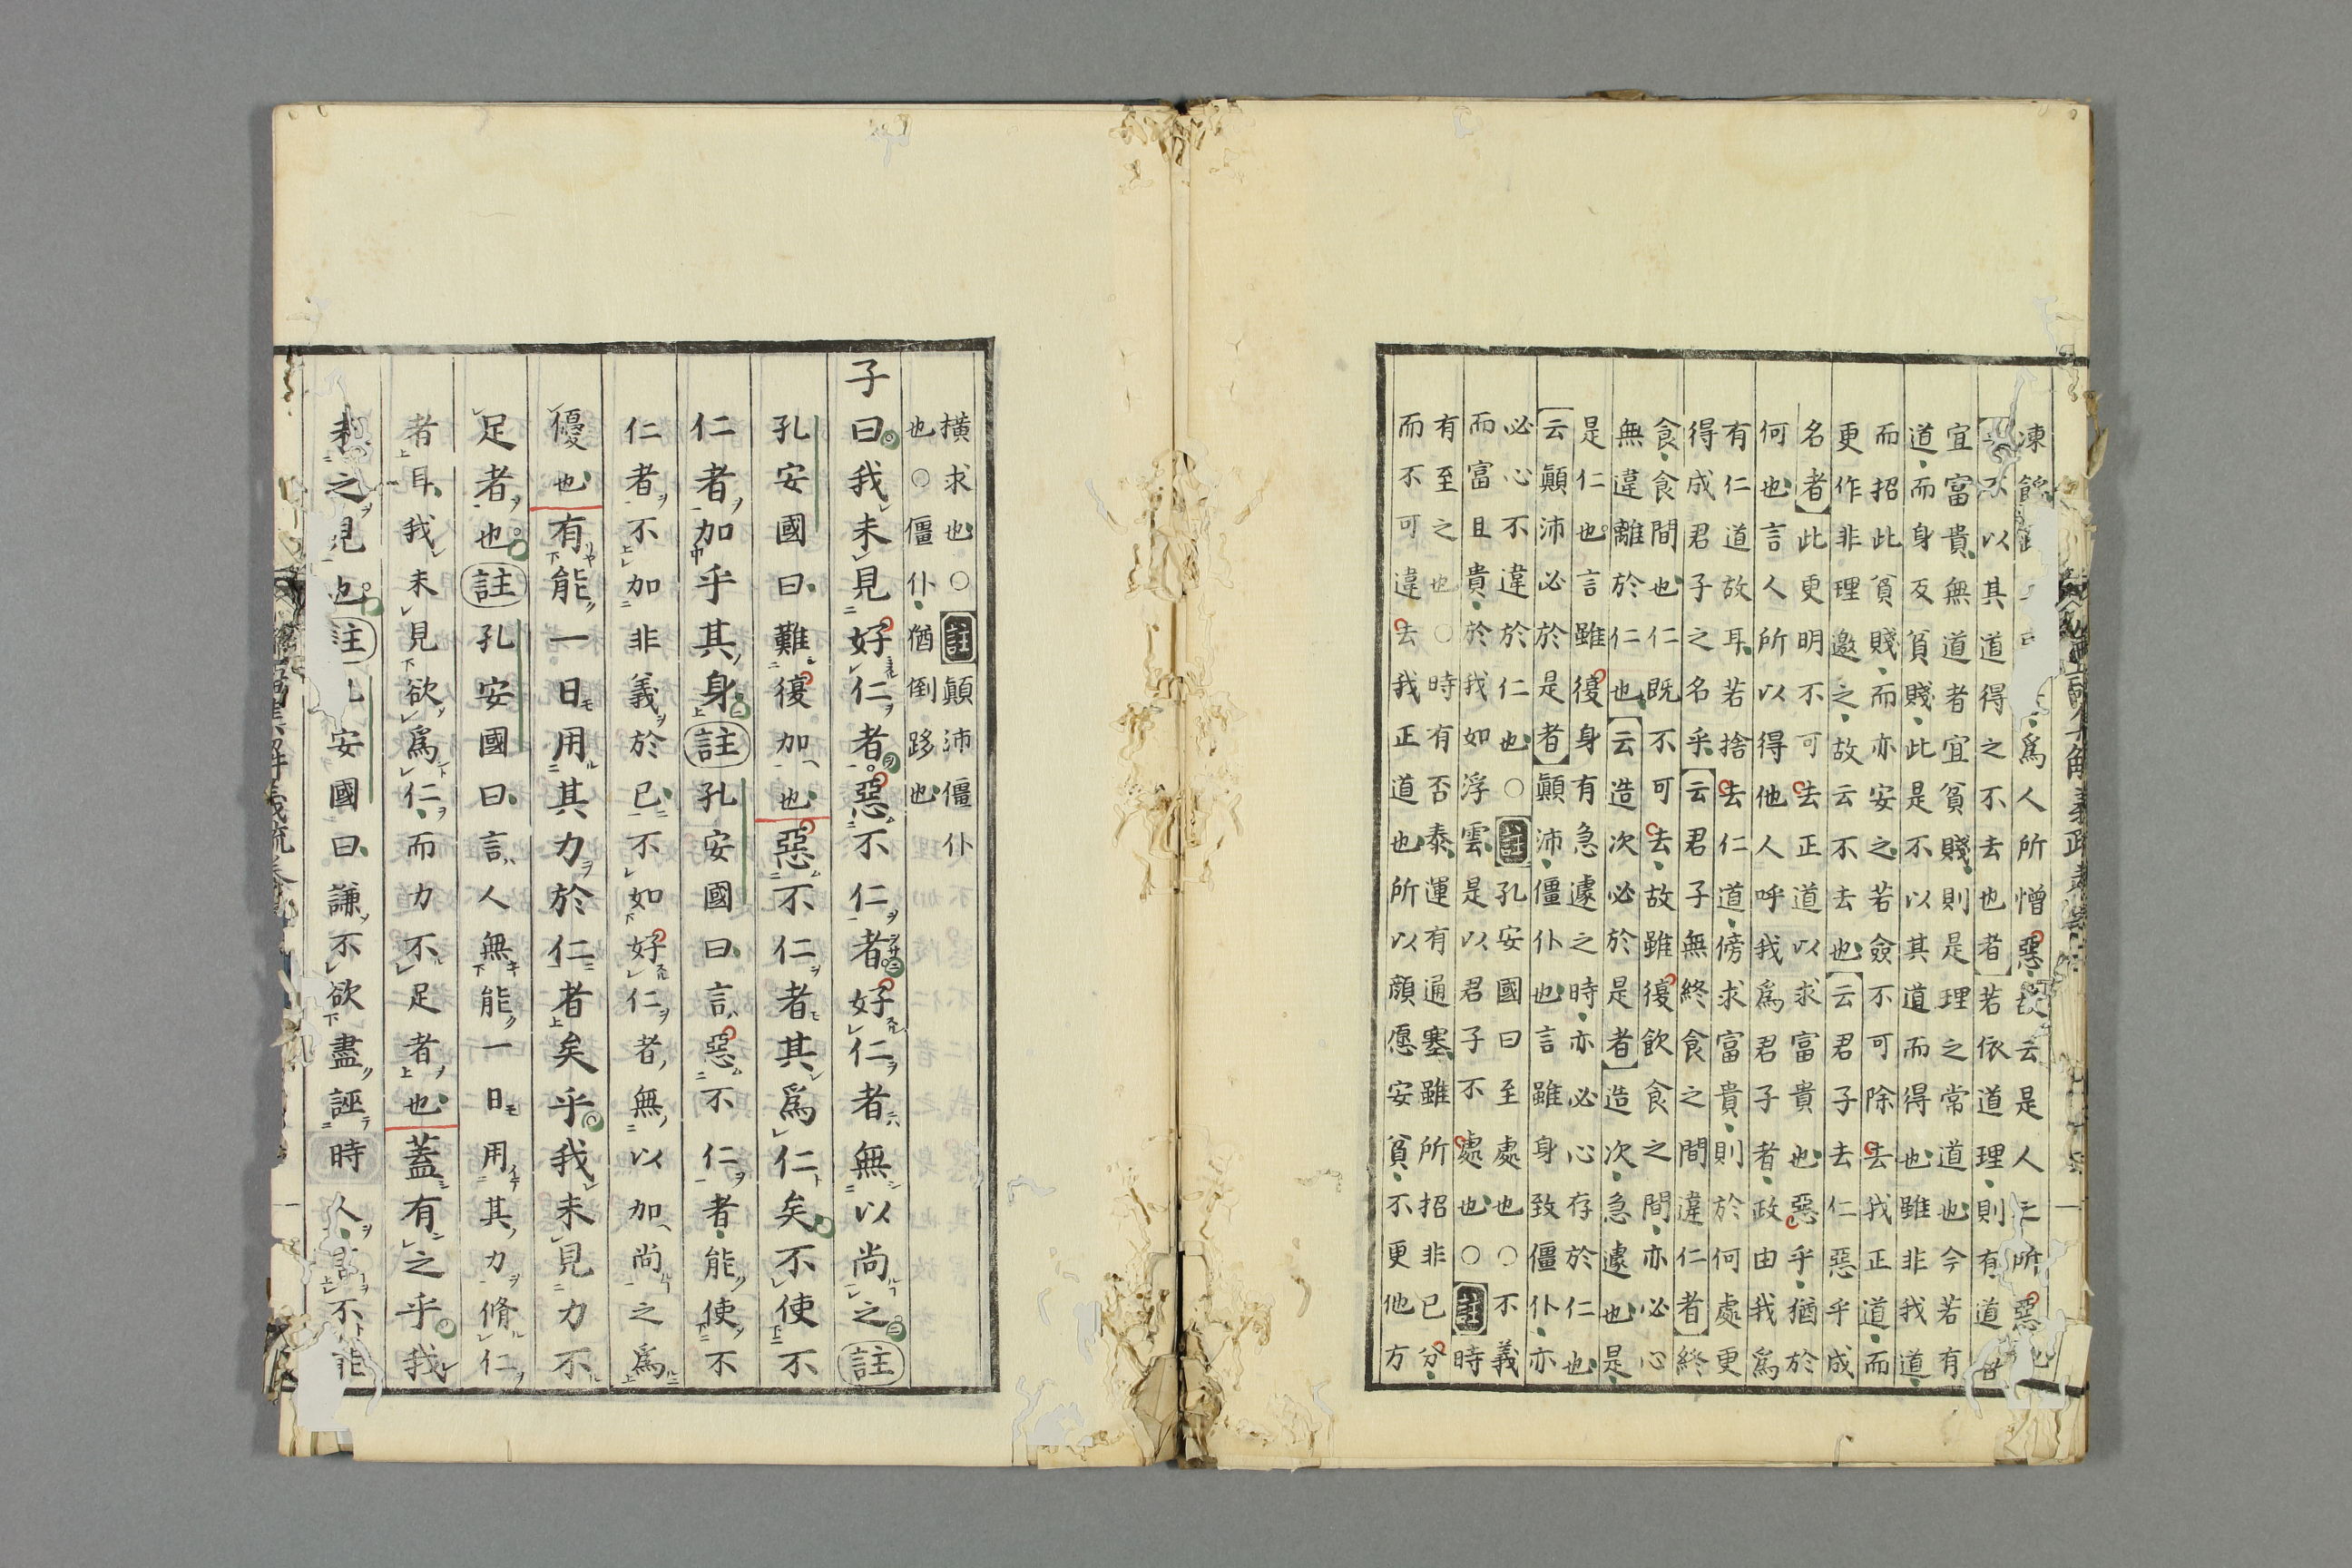 凍爲人所憎惡故云是人之所惡也
以其道得之不去也者若依道理則有道者
宜富貴無道者宜貧賤則是理之常道也今若有
道而身反貧賤此是不以其道而得也雖非我道
而招此貧賤而亦安之若僉不可除去我正道而
更作非理邀之故云不去也云君子去仁惡乎成
名者此更明不可去正道以求富貴也惡乎猶於
何也言人所以得他人呼我爲君子者政由我爲
有仁道故耳若捨去仁道傍求富貴則於何處更
得成君子之名乎云君子無終食之間違仁者終
食食間也仁既不可去故雖復飲食之間亦必心
無違離於仁也云造次必於是者造次急遽也是
是仁也言雖復身有急遽之時亦必心存於仁也
云顛沛必於是者顛沛僵仆也言雖身致僵仆亦
必心不違於仁也○註孔安國曰至處也○不義
而富且貴於我如浮雲是以君子不處也○註時
有至之也○時有否泰運有通塞雖所招非已分
而不可違去我正道也所以顔愿安貧不更他方
橫求也○註顛沛僵仆
也○僵仆猶倒跢也
子曰我未見好仁者惡不仁者好仁者無以尚之註
孔安國曰難復加也惡不仁者其爲仁矣不使不
仁者加乎其身註孔安國曰言惡不仁者能使不
仁者不加非義於己不如好仁者無以加尚之爲
優也有能一日用其力於仁者矣乎我未見力不
足者也註孔安國曰言人無能一日用其力脩仁
者耳我未見欲爲仁而力不足者也蓋有之乎我
未之見也註孔安國曰謙不欲盡誣時人言不能